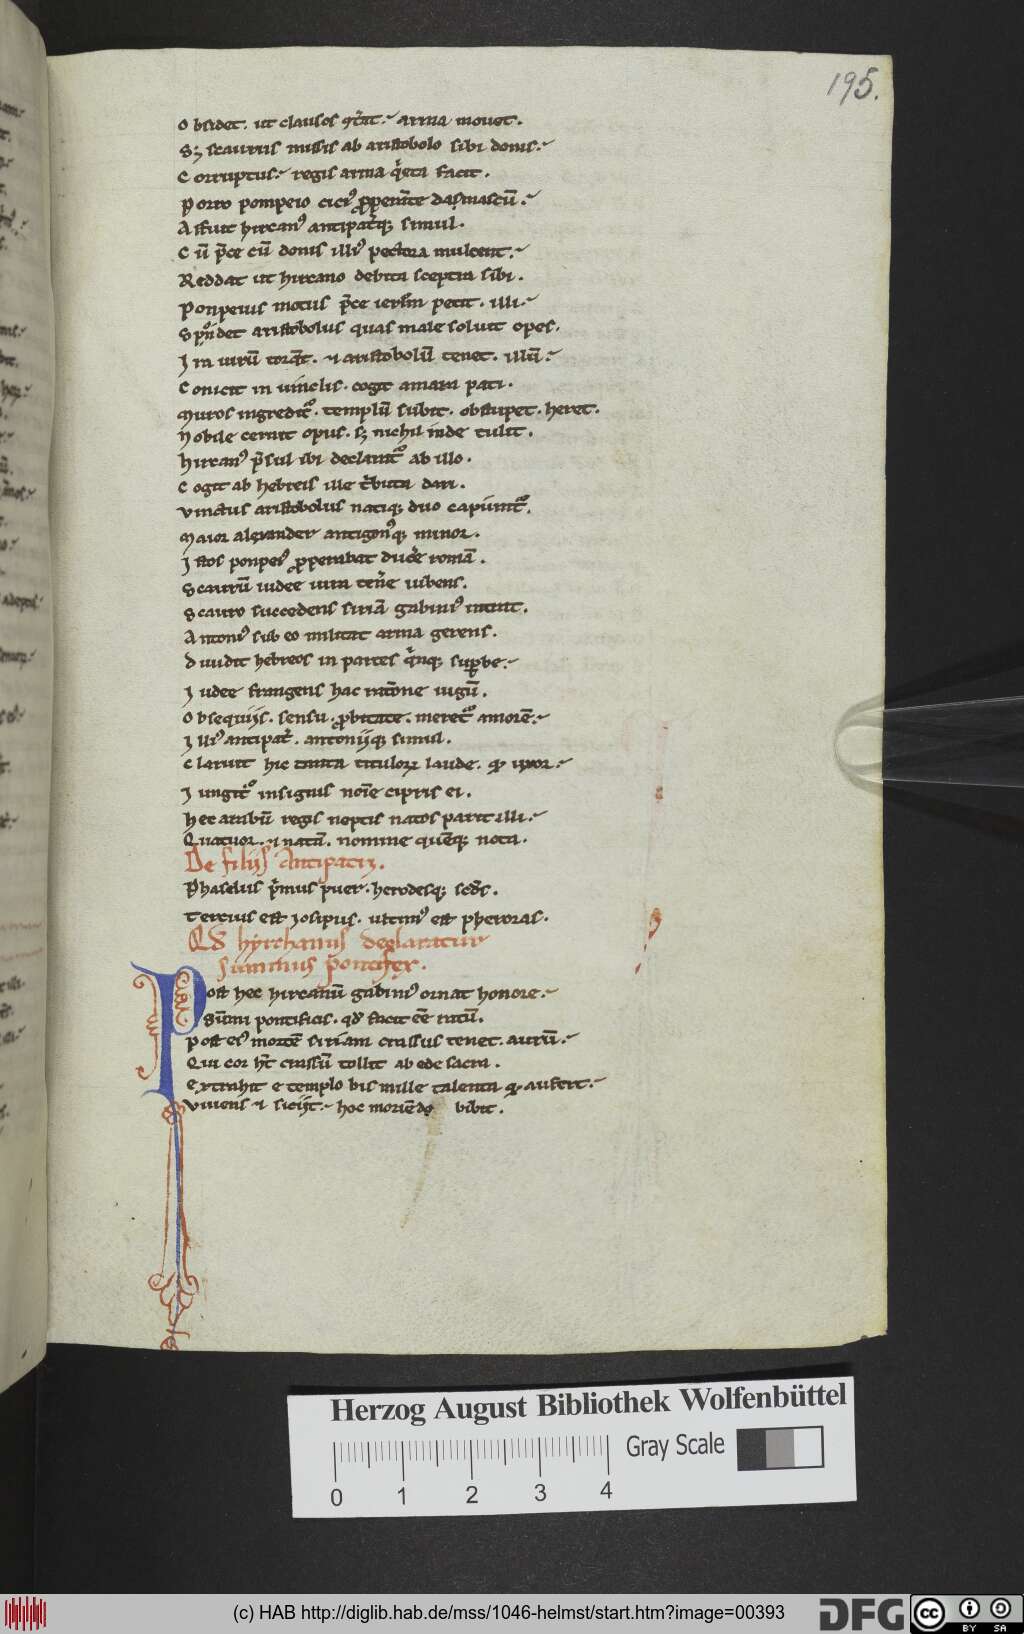 195.
Obsidet. ut clausos ꝯt͛at. arma mouet.
Sꝫ scaurus missis ab aristobolo sibi donis.
Corruptus. regis arma qͥeta facit.
Porro pompeio cici᷒ ꝓpen̄te damascū.
Affuit hircan᷒ antipat͛qꝫ simul.
Cū p̄ce cū donis illi᷒ pectora mulcent.
Reddat ut hircano debita sceptra sibi.
Ponpeius motus p̄ce ierl̄m petit. illi.
Spōdet aristobolus quas male soluit opes.
In uirū torq̄t. ⁊ aristobolū tenet. illū.
Conicit in uinclis. cogit amara pati.
Muros ingredit᷑. templū subit. obstupet. heret.
Nobile cernit opus. sꝫ nichil inde tulit.
Hircan᷒ p̄sul ibi declarat᷑ ab illo.
Cogit ab hebreis ille tͥbuta dari.
Vinctus aristobolus natiqꝫ duo capiunt᷑.
Maior alexander antigon᷒qꝫ minor.
Istos ponpei᷒ ꝓperabat duce͛ romā.
Scaurū iudee iura ten͛e iubens.
Scauro succedens siriā gabini᷒ intrat.
Antoni᷒ sub eo militat arma gerens.
Diuidit hebreos in partes qͥnqꝫ supbe.
Iudee frangens hac rat̄one iugū.
Obsequiis. sensu. ꝓbitate. meret᷑ amorē.
Illi᷒ antipat͛. antoniiqꝫ simul.
Claruit hic tanta titulorꝝ laude. qͦ uxor.
Iungit᷑ insignis noīe cipris ei.
Hec arabū regis neptis natos parit illi.
Quatuor. ⁊ natā. nomine quēqꝫ nota.
De filiis Antipatri.
Phaselus pͥmus puer. herodesqꝫ sc̄ds.
Tercius est iosipus. ultim᷒ est pheroras.
QD hyrchanus declaratur
summus pontifex.
Post hec hircanū gabini᷒ ornat honore.
Sūmi pontificis. qd̓ facit eē ratū.
Post ei᷒ mortē siriam crassus tenet. aurū.
Qui cor h̄t crassū tollit ab ede sacra.
Extrahit e templo bis mille talenta qͦ aufert.
Viuens ⁊ siciit. hoc moriēdo bibit.
Herzog August Bibliothek Wolfenbüttel
Gray Scale
0 1 2 3 4
(c) HAB http://diglib.hab.de/mss/1046-helmst/start.htm?image=00393
DFG
cc BY SA